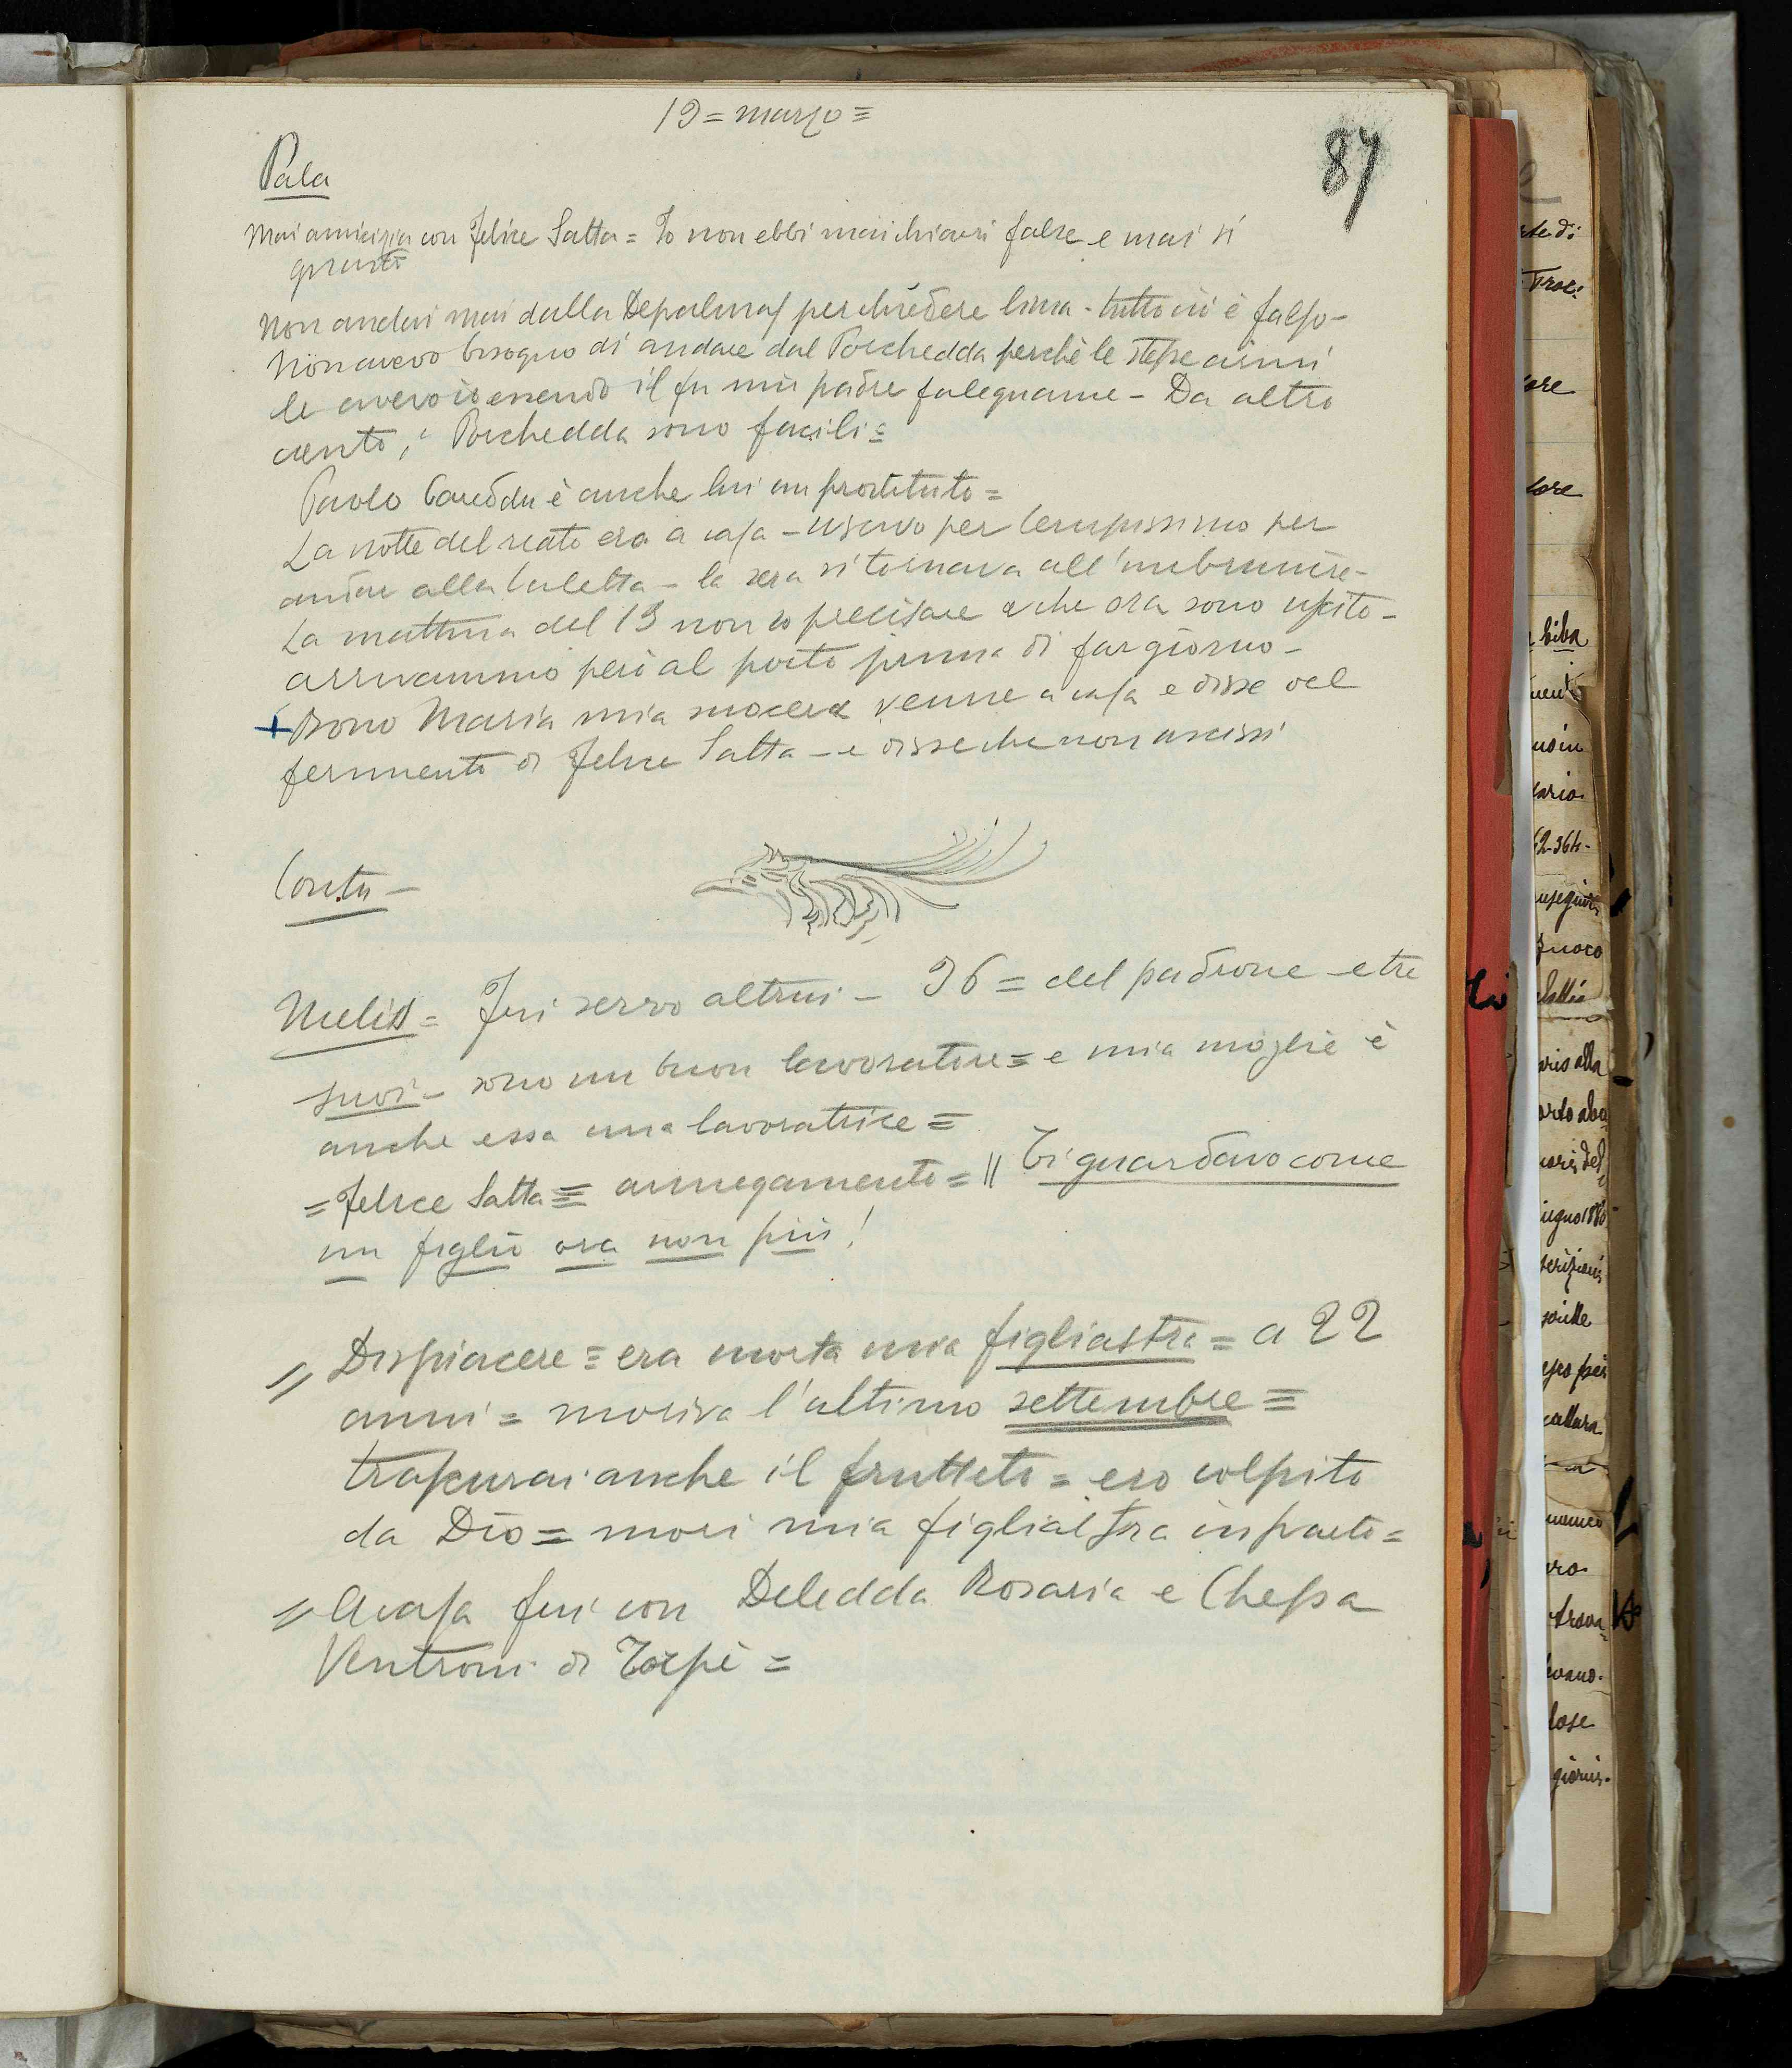 19 = marzo =
87
Pala
Mai amicizia con Felice Satta = Io non ebbi mai chiavi false e mai si
Non andai mai dalla Depalmas per chiedere lima - tutto ciò è falso -
Non avevo bisogno di andare dal Porchedda perchè le stesse armi
le avevo io essendo il fu mio padre falegname - Da altro
canto, i Porchedda sono facili =
Paolo Careddu è anche lui un prostituto =
La notte del reato ero a casa - uscivo per tempissimo per
andare alla - la sera si tornava all'imbrunire -
La mattina del 13 non so precisare a che ora sono uscito -
arrivammo però al porto prima di far giorno -
+ Bono Maria mia suocera venne a casa e disse del
ferimento di Felice Satta - e disse che non uscissi
Contu -
Melis = Fui servo altrui - 36 = del padrone e tre
suoi - sono un buon lavoratore = e mia moglie è
anche essa una lavoratrice =
= Felice Satta = annegamento = " Ti guardavo come
un figlio ora non più !
" Dispiacere = era morta mia figliastra = a 22
anni = moriva l'ultimo settembre =
trascurai anche il frutteto = ero colpito
da Dio = morì mia figliastra in parto =
" A casa fui con Deledda Rosaria e Chessa
Ventroni di Torpè =